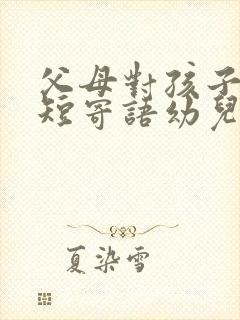 父母對孩子
短寄語幼兒
夏染雪